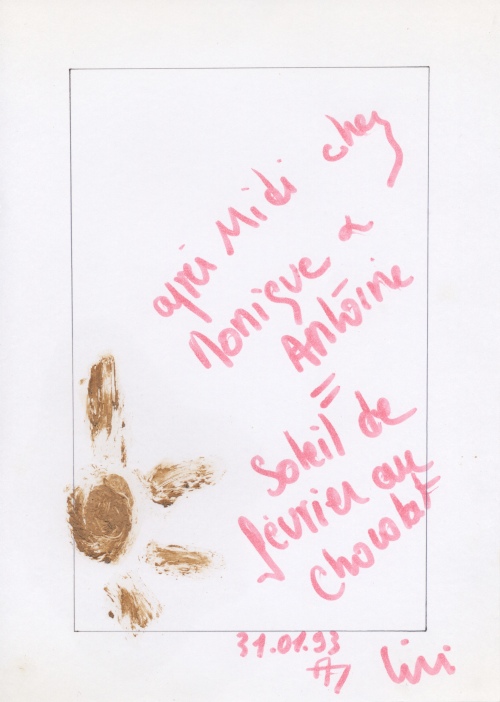 après Midi chez
Monique &
Antoine
=
Soleil de
février au
chocolat
31.01.93
Lili